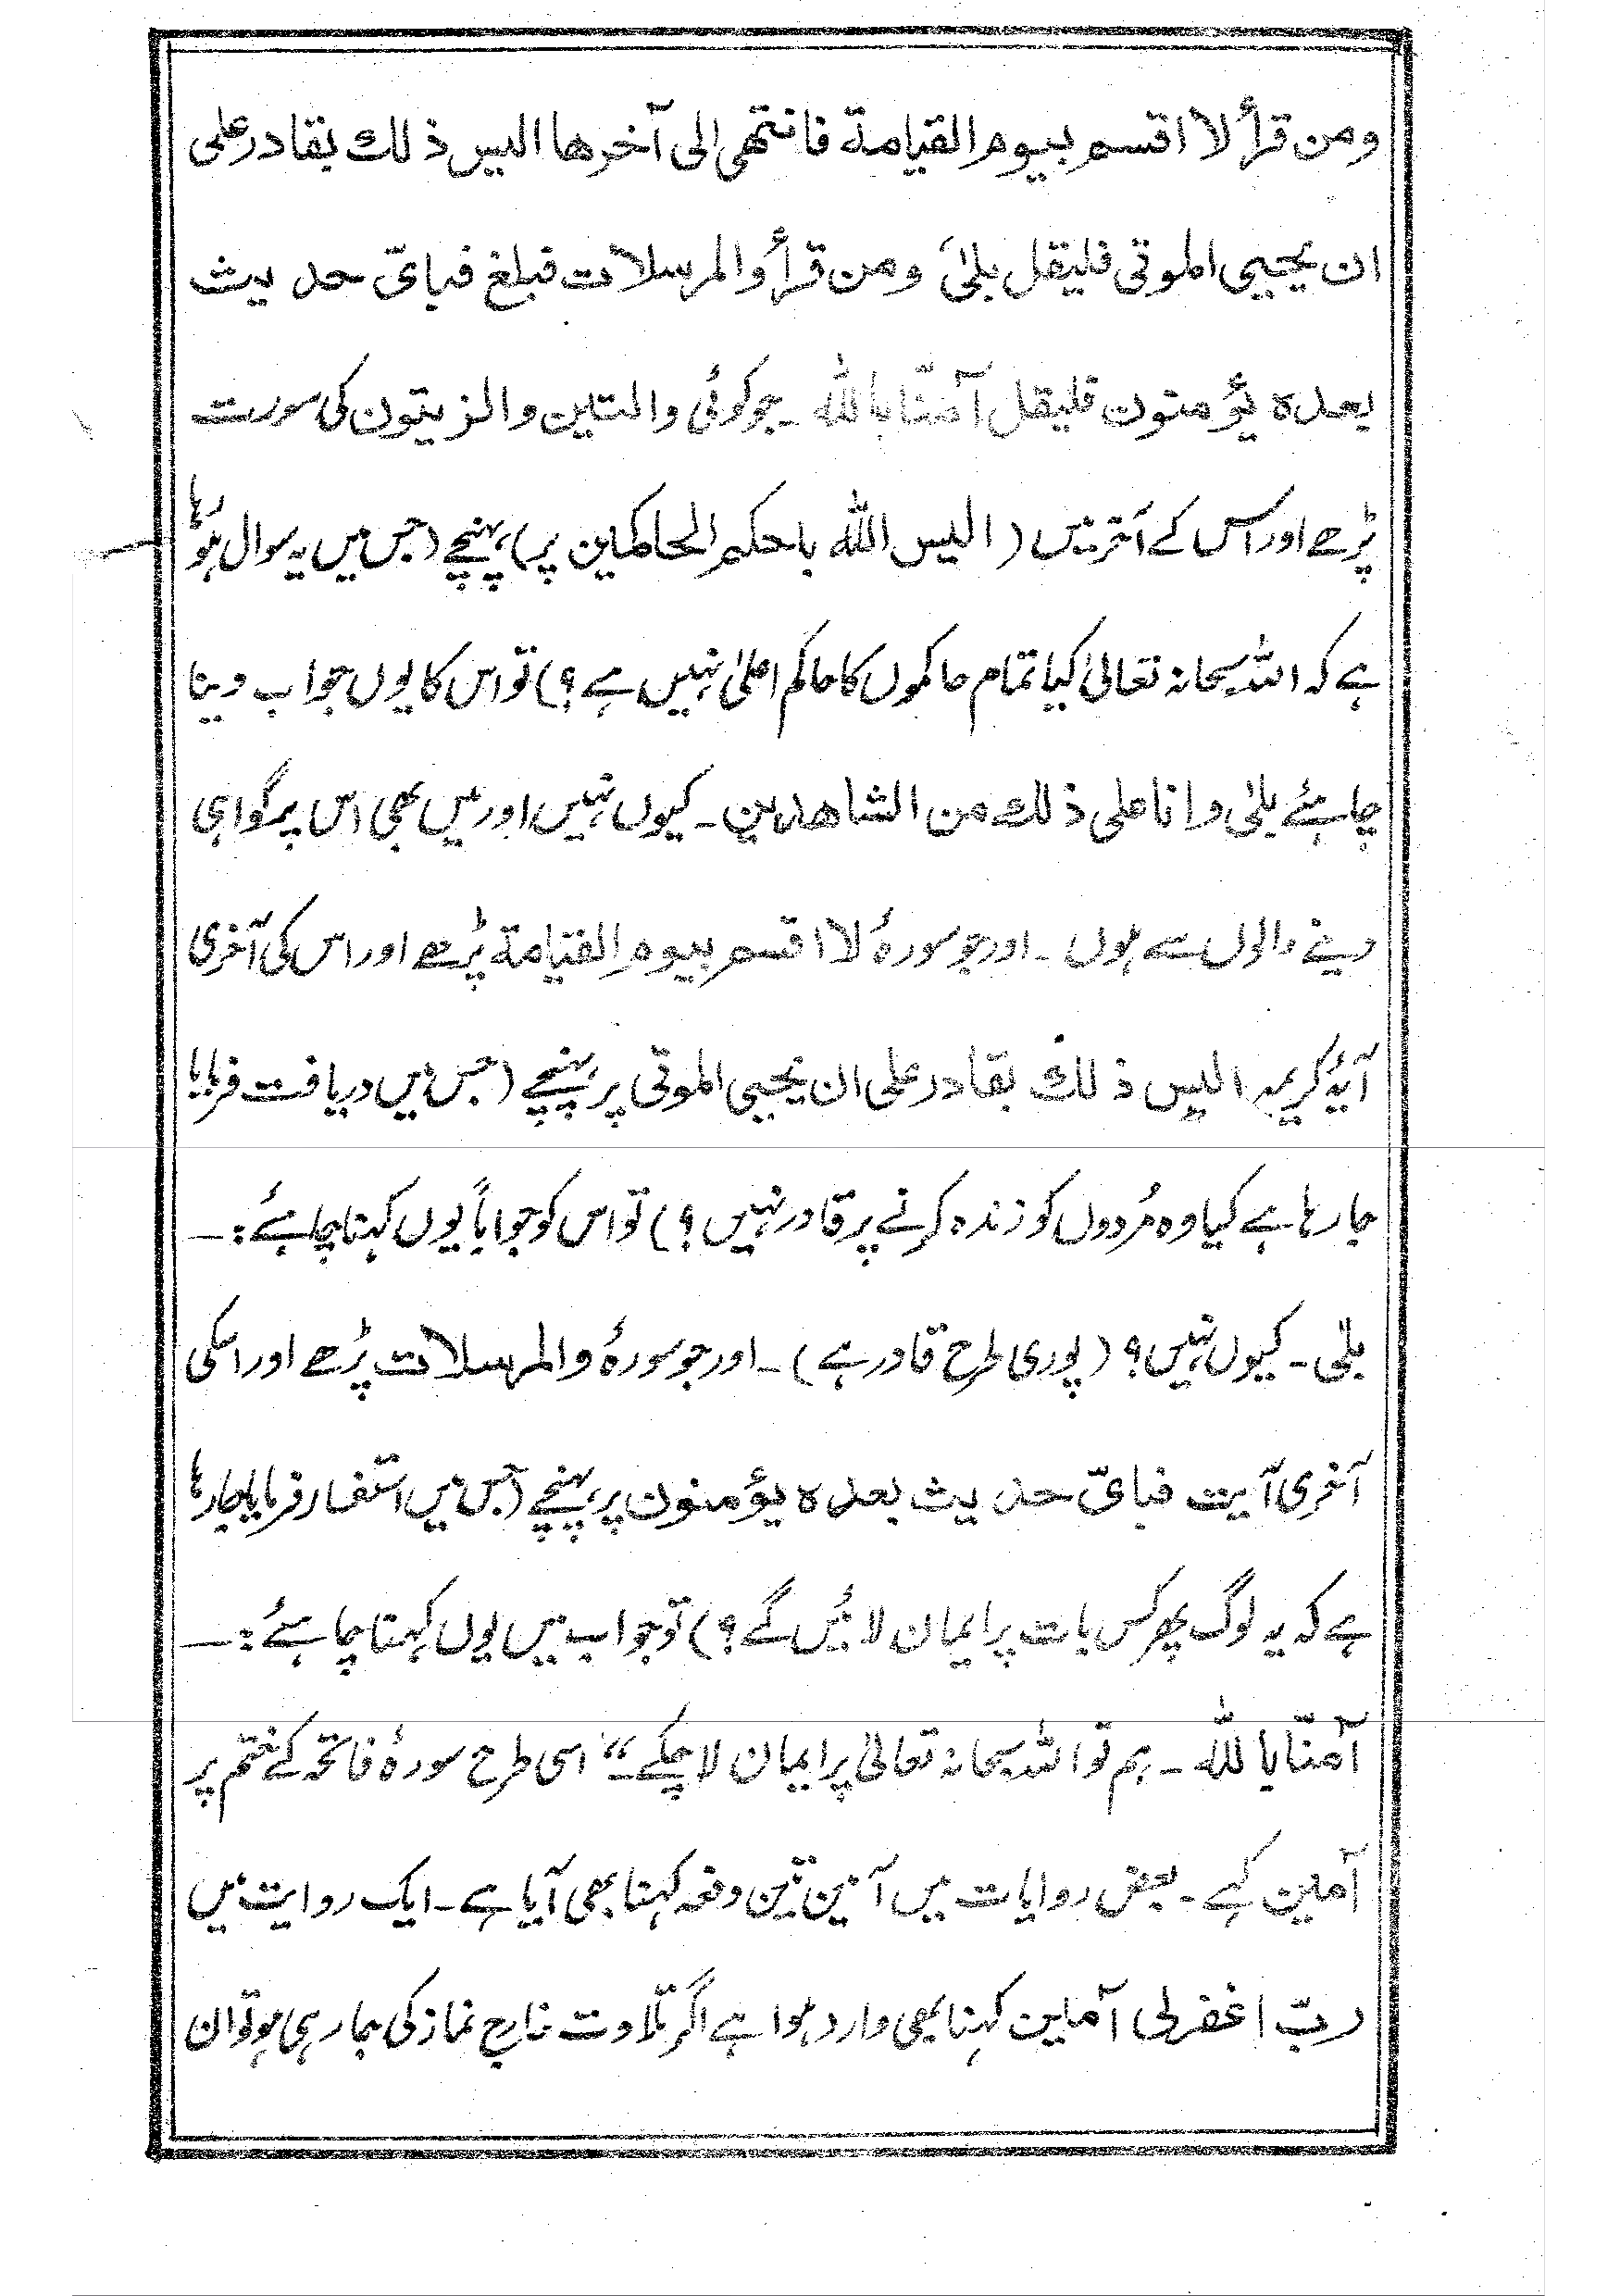 ومن قرأ لا اقسم بیوم القیامة فانتهی الی آخرها الیس ذلك بقادر علی
ان یحیی الموتی فلیقل بلیٰ ومن قرأ والمرسلات فبلغ فبایّ حدیث
بعده یؤمنون فلیقل آمنّا باللّٰه ۔ جو کوئی والتین والزیتون کی سورت
پڑھے اور اس کے آخر میں (الیس اللّٰه باحکم الحاکمین پر) پہنچے (جس میں یہ سوال ہو رہا
ہے کہ اللہ سبحانہ تعالیٰ کیا تمام حاکموں کا حاکم اعلیٰ نہیں ہے ؟) تو اس کا یوں جواب دینا
چاہئے بلیٰ وانا علی ذلك من الشاهدین ۔ کیوں نہیں اور میں بھی اس پر گواہی
دینے والوں سے ہوں ۔ اور جو سورۂ لا اقسم بیوم القیامة پڑھے اور اس کی آخری
آیۂ کریمہ الیس ذلك بقادر علی ان یحیی الموتی پر پہنچے (جس میں دریافت فرمایا
جا رہا ہے کیا وہ مُردوں کو زندہ کرنے پر قادر نہیں ؟) تو اس کو جواباً یوں کہنا چاہئے :۔
بلی ۔ کیوں نہیں ؟ (پوری طرح قادر ہے) ۔ اور جو سورۂ والمرسلات پڑھے اور اسکی
آخری آیت فبایّ حدیث بعده یؤمنون پر پہنچے (جس میں استفسار فرمایا جا رہا
ہے کہ یہ لوگ پھر کس بات پر ایمان لائیں گے ؟) تو جواب میں یوں کہنا چاہئے :۔
آمنّا باللّٰه ۔ ہم تو اللہ سبحانہ تعالیٰ پر ایمان لا چکے ۔“ اسی طرح سورۂ فاتحہ کے ختم پر
آمین کہے ۔ بعض روایات میں آمین تین دفعہ کہنا بھی آیا ہے ۔ ایک روایت میں
ربّ اغفرلی آمین کہنا بھی وارد ہوا ہے اگر تلاوت خارج نماز کی جا رہی ہو تو ان